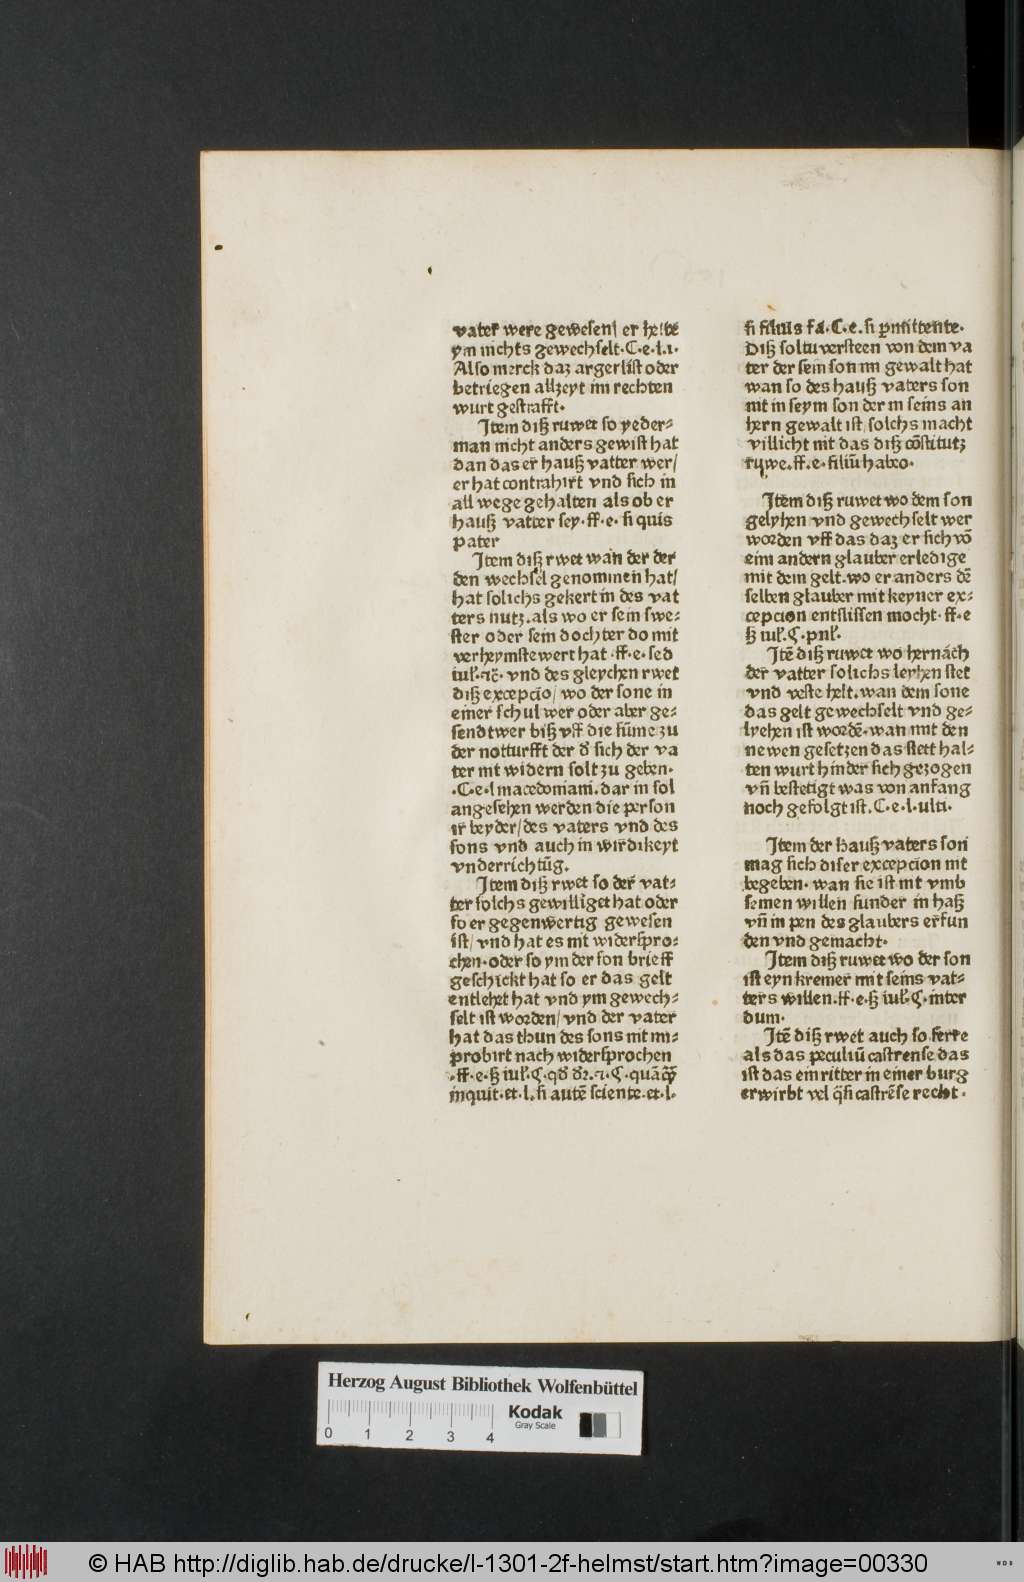 vater were gewesen/ er hette
ym nichts gewechselt.C.e.l.i.
Also merck daz argerlist oder
betriegen allzeyt im rechten
wurt gestrafft.
Item diß ruwet so yeder-
man nicht anders gewist hat
dan das er hauß vatter wer/
er hat contrahirt vnd sich in
all wege gehalten als ob er
hauß vatter sey.ff.e.si quis
pater
Item diß rwet wan der der
den wechsel genommen hat/
hat solichs gekert in des vat
ters nutz.als wo er sein swe-
ster oder sein dochter do mit
verheymstewert hat.ff.e.sed
iul.⁊c̄. vnd des gleychen rwet
diß excepcio/ wo der sone in
einer schul wer oder aber ge-
sendt wer biß vff die sūme zu
der notturfft der d̄ sich der va
ter nit widern solt zu geben.
.C.e.l macedoniani.dar in sol
angesehen werden die person
ir beyder/des vaters vnd des
sons vnd auch in wirdikeyt
vnderrichtūg.
Item diß rwet so der vat-
ter solchs gewilliget hat oder
so er gegenwertig gewesen
ist/ vnd hat es nit widerspro-
chen.oder so ym der son brieff
geschickt hat so er das gelt
entlehet hat vnd ym gewech-
selt ist worden/ vnd der vater
hat das thun des sons nit mi-
probirt nach widersprochen
.ff.e.ß iul.ꝗ.qd̄ dr̄.⁊.ꝗ.quāꝗ̄
inquit.et.l.si autē sciente.et.l.
si filius fa.C.e.si pmittente.
Diß soltu versteen von dem va
ter der sein son im gewalt hat
wan so des hauß vaters son
nit in seym son der in seins an
hern gewalt ist/ solchs macht
villicht nit das diß cōstitutz
ruwe.ff.e.filiū habeo.
Item diß ruwet wo dem son
gelyhen vnd gewechselt wer
worden vff das daz er sich vō
eim andern glauber erledige
mit dem gelt.wo er anders dē
selben glauber mit keyner ex-
cepcion entslissen mocht.ff.e
ß iul.ꝗ.pnl.
Itē diß ruwet wo hernach
der vatter solichs leyhen stet
vnd veste helt.wan dem sone
das gelt gewechselt vnd ge-
lyehen ist wordē.wan mit den
newen gesetzen das stett hal-
ten wurt hinder sich gezogen
vn̄ bestetigt was von anfang
noch gefolgt ist.C.e.l.ulti.
Item der hauß vaters son
mag sich diser excepcion nit
begeben.wan sie ist nit vmb
seinen willen sunder in haß
vn̄ in pen des glaubers erfun
den vnd gemacht.
Item diß ruwet wo der son
ist eyn kremer mit seins vat-
ters willen.ff.e.ß iul.ꝗ.inter
dum.
Itē diß rwet auch so ferre
als das peculiū castrense das
ist das ein ritter in einer burg
erwirbt vel q̄si castrēse recht.
Herzog August Bibliothek Wolfenbüttel
0 1 2 3 4
Kodak
Gray Scale
© HAB http://diglib.hab.de/drucke/l-1301-2f-helmst/start.htm?image=00330
WDB